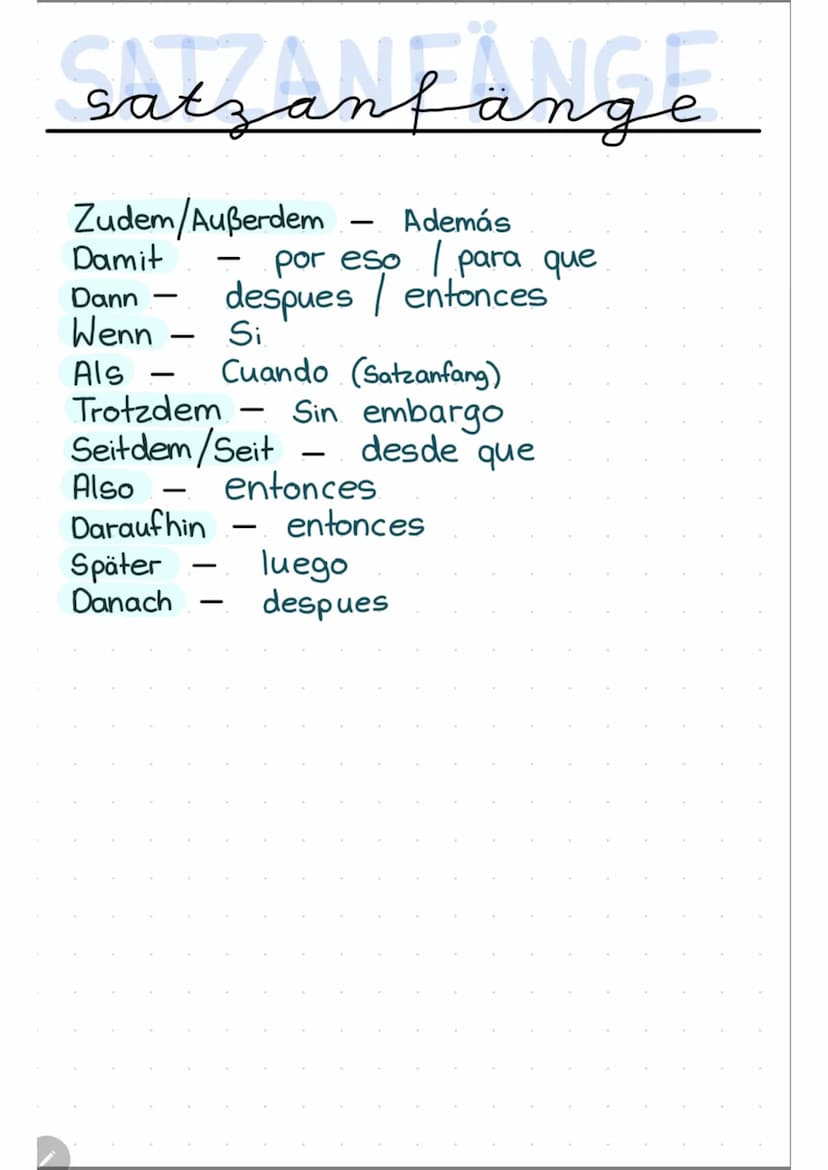 SATZANFÄNGE
satzanfänge
Zudem/Außerdem – Además
Damit – por eso / para que
Dann – despues / entonces
Wenn – Si
Als – Cuando (Satzanfang)
Trotzdem – Sin embargo
Seitdem/Seit – desde que
Also – entonces
Daraufhin – entonces
Später – luego
Danach – despues